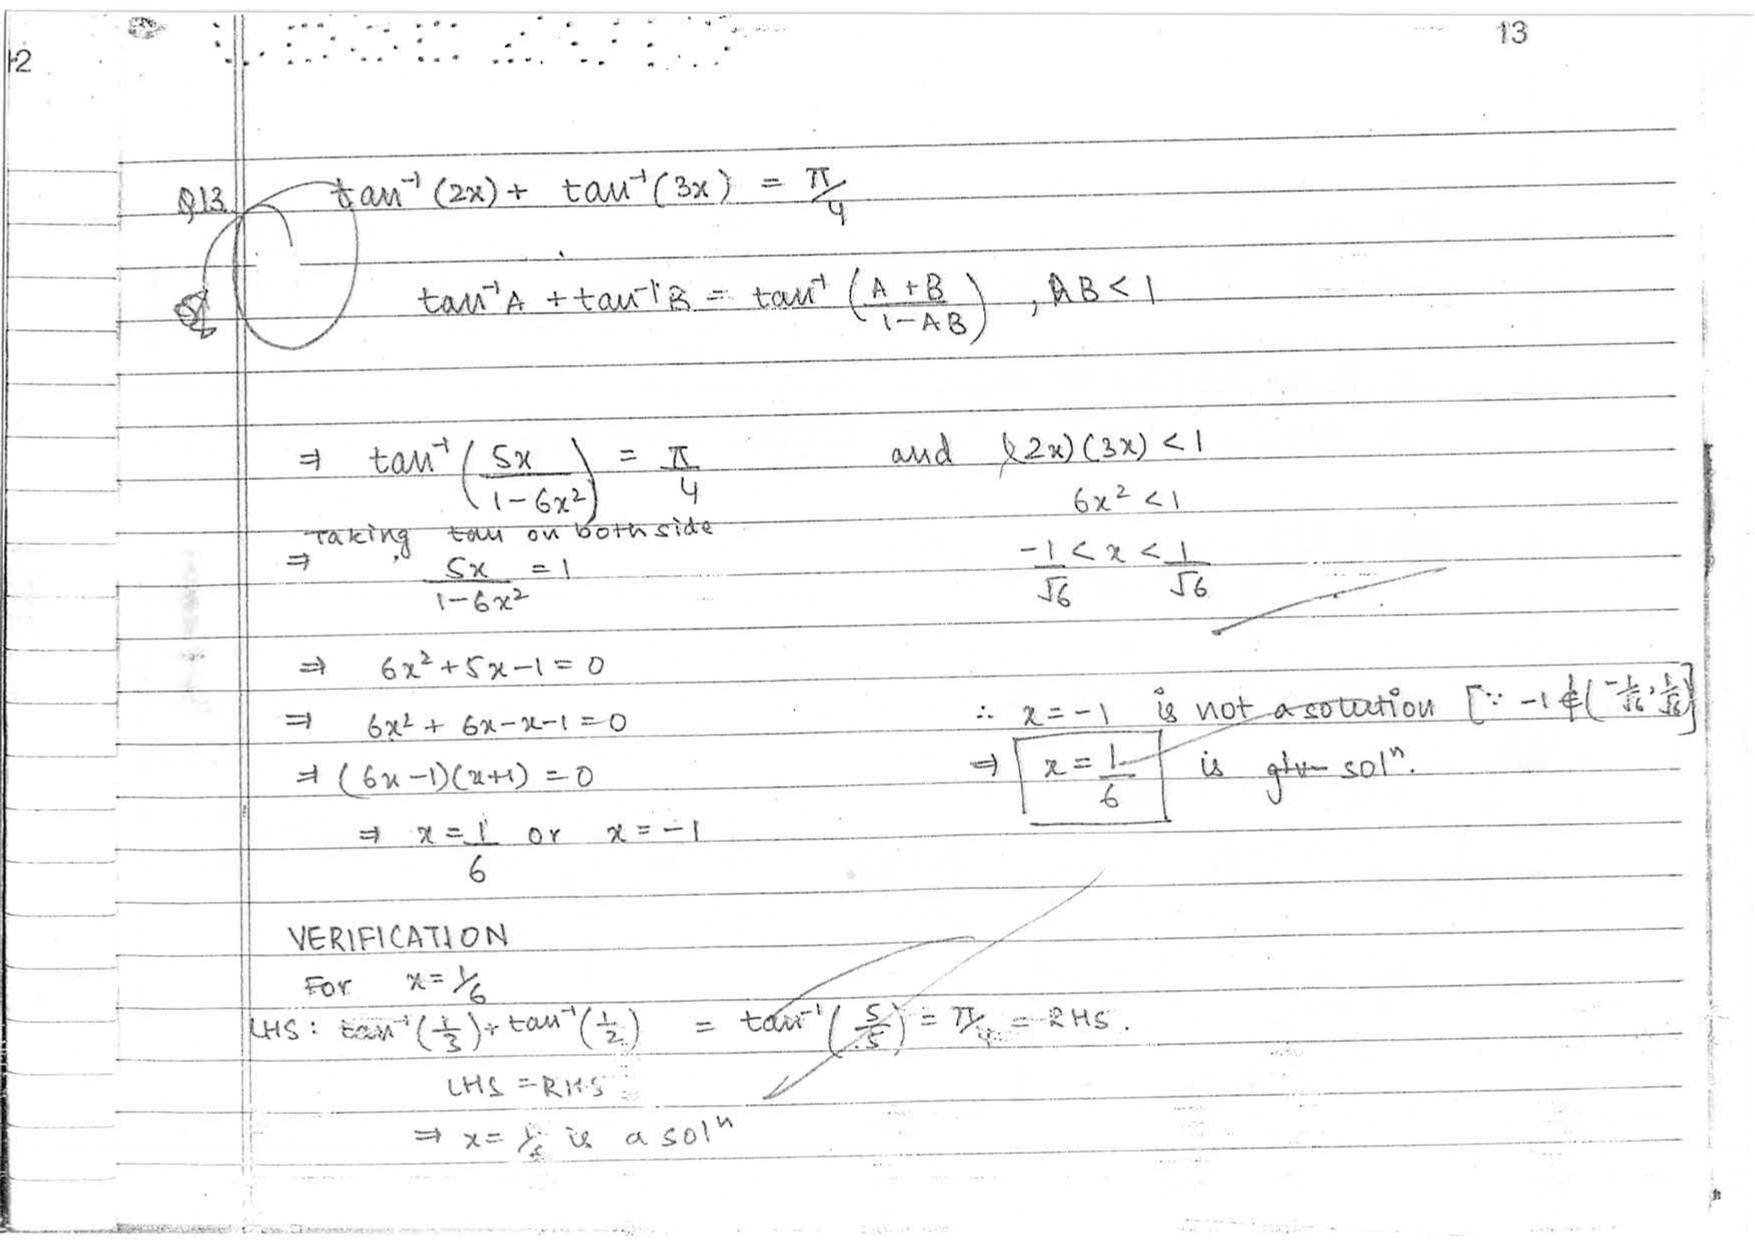 12
13
Q13. tan⁻¹(2x) + tan⁻¹(3x) = π/4
tan⁻¹A + tan⁻¹B = tan⁻¹((A+B)/(1-AB)), AB<1
⇒ tan⁻¹(5x/(1-6x²)) = π/4 and (2x)(3x)<1
6x²<1
Taking tan on both side
⇒ 5x/(1-6x²) = 1
-1/√6 < x < 1/√6
⇒ 6x²+5x-1=0
⇒ 6x²+6x-x-1=0
∴ x=-1 is not a solution [∵ -1∉(-1/√6, 1/√6)]
⇒ (6x-1)(x+1)=0
⇒ x=1/6 is solⁿ.
⇒ x=1/6 or x=-1
VERIFICATION
For x=1/6
LHS: tan⁻¹(1/3)+tan⁻¹(1/2) = tan⁻¹(5/5) = π/4 = RHS.
LHS=RHS
⇒ x=1/6 is a solⁿ